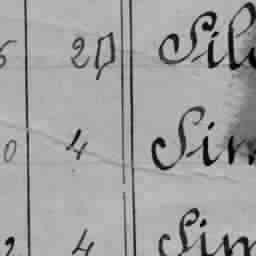 20 Sil
0 4 Sim
2 4 Sim